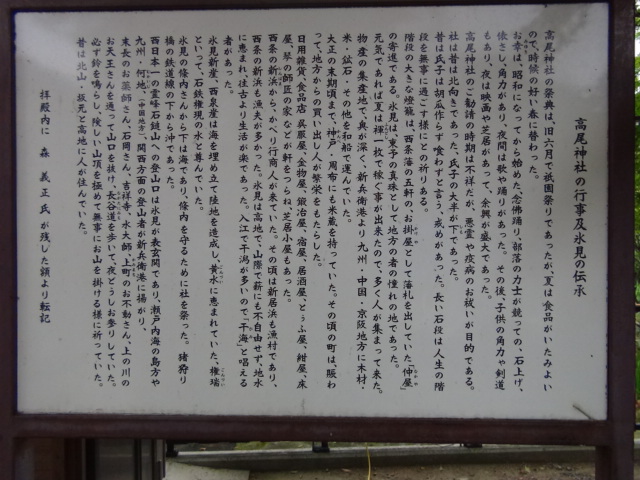 高尾神社の行事及氷見の伝承
高尾神社の祭典は、旧六月で祇園祭りであったが、夏は食品がいたみよい
ので、時候の好い春に替わった。
お幸は、昭和になってから始めた、念佛踊り、部落の力士が競ての、石上げ、
俵さし、角力があり、夜間は歌や踊りがあった。その後、子供の角力や剣道
もあり、夜は映画や芝居があって、余興が盛大であった。
高尾神社のご勧請の時期は不祥だが、悪霊や疫病のお祓いが目的である。
社は昔は北向きであった、氏子の大半が下であった。
昔は氏子は胡瓜作らず喰わずと言う、戒めがあった。長い石段は人生の階
段を無事に過ごす様にとの祈りある。
階段の大きな燈籠は、西条藩の五軒のお掛屋として藩札を出していた「仲屋」
の寄進である。氷見は、東予の真珠として地方の者の憧れの地であった。
元気であれば夏は裸一枚で稼ぐ事が出来たので、多く人が集まって来た。
物産の集産地で、奥が深く、新兵衛港より九州・中国・京阪地方に木材・
米・鉱石・その他を和船で運んでいた。
大正の末期頃まで、神戸、周布にも米蔵を持っていた。その頃の町は賑わ
って、地方からの買い出し人が繁栄をもたらした。
日用雑貨、食品店、呉服屋、金物屋、鍛冶屋、宿屋、居酒屋、とうふ屋、紺屋、床
屋、琴の師匠の家などが軒をつらね、芝居小屋もあった。
西条の新浜から、かべり行商人が来ていた。その頃は新居浜も漁村であり、
西条の新浜も漁夫が多かった。氷見は高地で、山際で薪にも不自由せず、地水
に恵まれ、住もより生活が楽であった。入江で干潟が多いので「干海」と唱える
者があった。
氷見新産、西泉産は海を埋め立て陸地を造成し、黄水に恵まれていた、権瑞
といって、石鉄権現の水と尊んでいた。
氷見の條内さんから下は海であり、條内を守るために社を祭った。猪狩り
橋の鉄道線の下から沖であった。
西日本一の霊峰石鎚山への登山口は氷見が表玄関であり、瀬戸内海の島方や
九州・何地、(中国地方)、関西方面の登山者が新兵衛港に揚がり、
末長のお薬師さん、石岡さん、吉祥寺、水大師、上町のお不動さん、上の川の
お天王さんを通って山口を抜け、長谷道を歩いて、夜どうしお参りしていた。
必ず鈴を鳴らし、険しい山頂を極めて無事にお山を掛ける様に祈っていた。
昔は北山・坂元と高地に人が住んでいた。
拝殿内に 森 義正氏が残した額より転記